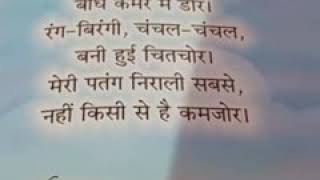 बाँधे कमर में डोर।
रंग-बिरंगी, चंचल-चंचल,
बनी हुई चितचोर।
मेरी पतंग निराली सबसे,
नहीं किसी से है कमजोर।